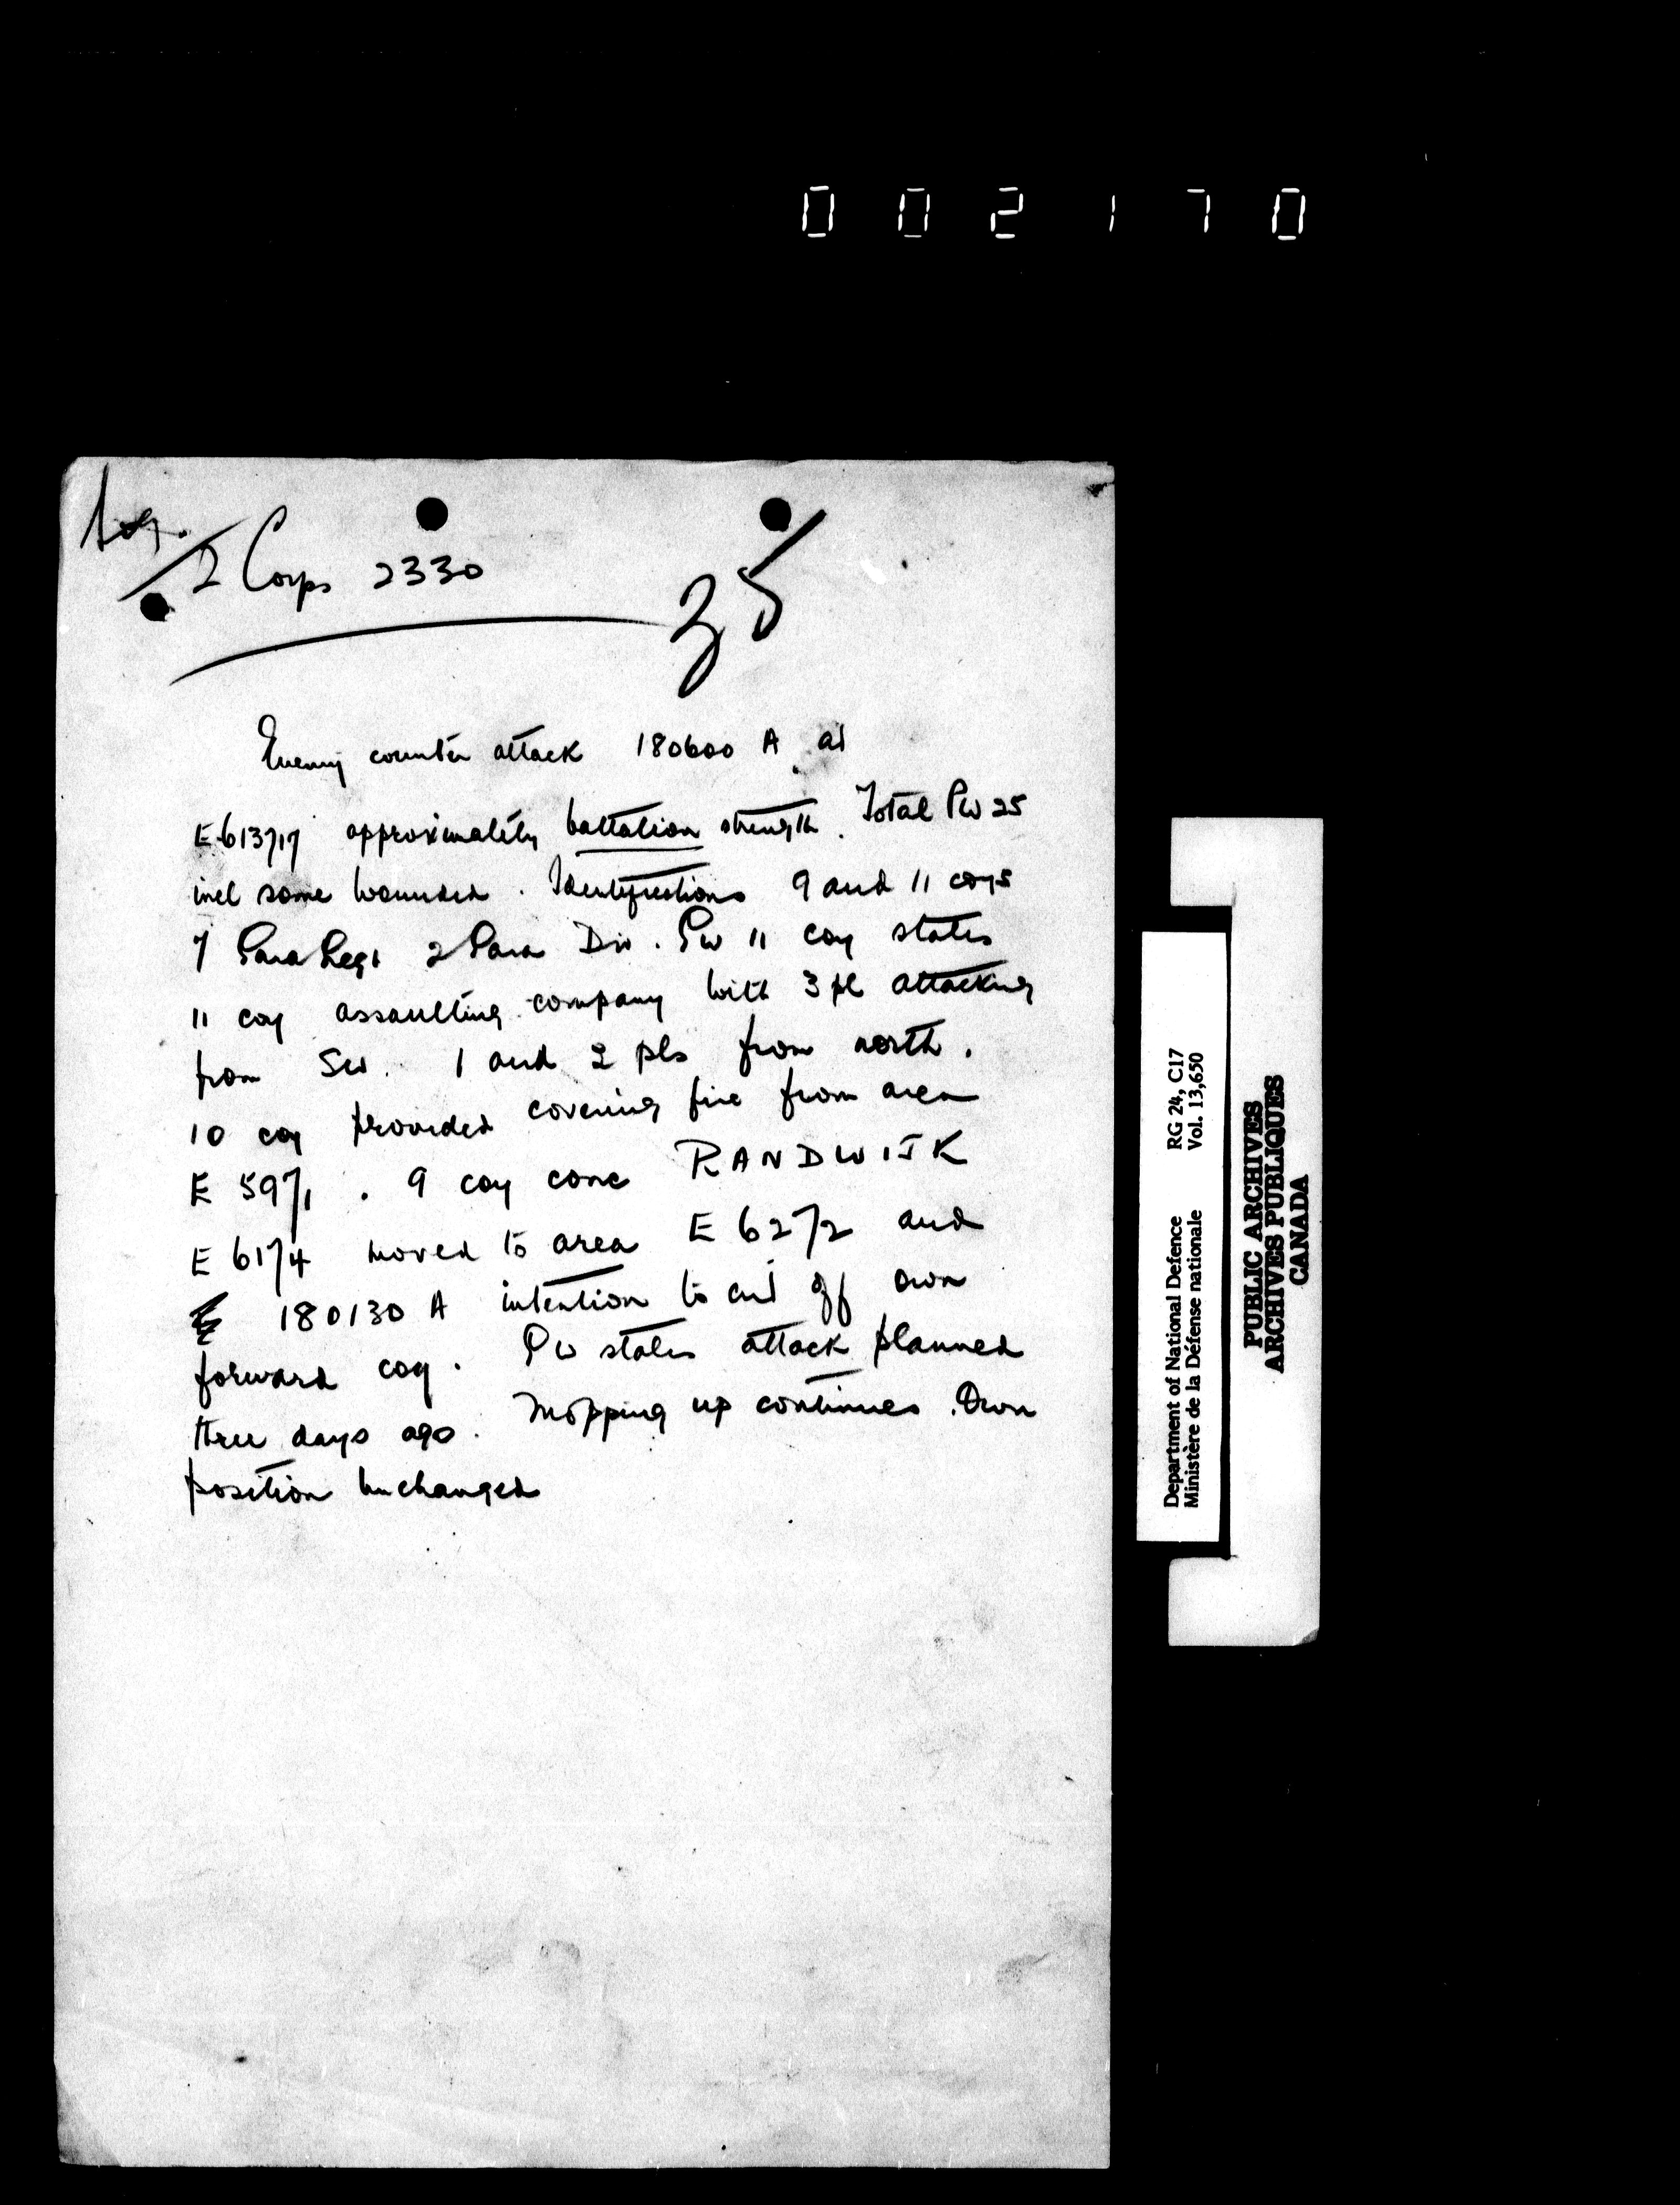 002170
Log.
2 Corps 2330
35
Enemy counter attack 180600 A at
E 613717 approximately battalion strength. Total PW 25
incl some wounded. Identifications 9 and 11 coys
7 Para Regt 2 Para Div. PW 11 coy states
11 coy assaulting company with 3 pl attacking
from SW. 1 and 2 pls from north.
10 coy provided covering fire from area
E 5971. 9 coy conc RANDWIJK
E 6174 moved to area E 6272 and
180130 A intention to cut off own
forward coy. PW states attack planned
three days ago. Mopping up continues. Own
position unchanged
Department of National Defence RG 24, C17
Ministère de la Défense nationale Vol. 13,650
PUBLIC ARCHIVES
ARCHIVES PUBLIQUES
CANADA